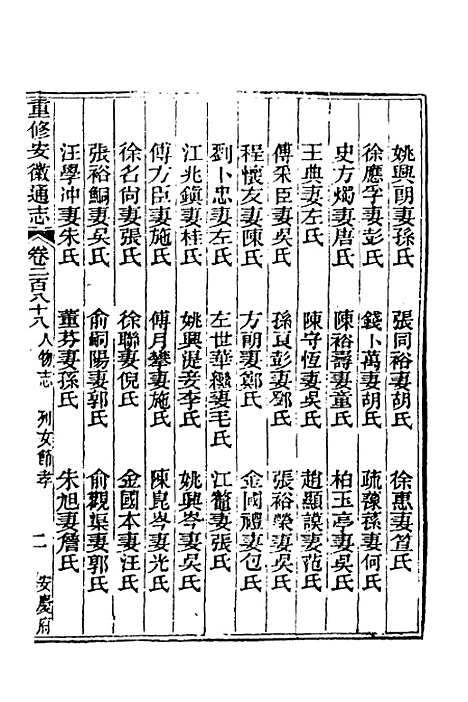 姚興朗妻孫氏　張同裕妻胡氏　徐惠妻笪氏
徐應孚妻彭氏　錢卜萬妻胡氏　疏豫蓀妻何氏
史方燭妻唐氏　陳裕壽妻童氏　柏玉亭妻吳氏
王典妻左氏　陳守恆妻吳氏　趙顯謨妻范氏
傅釆臣妻吳氏　孫貢彭妻鄧氏　張裕榮妻吳氏
程懷友妻陳氏　方朝妻鄭氏　金國禮妻包氏
劉卜忠妻左氏　左世華繼妻毛氏　江鼇妻張氏
江兆鎮妻桂氏　姚興湜妾李氏　姚興岑妻吳氏
傅方臣妻施氏　傅月攀妻施氏　陳崑岑妻光氏
徐名尙妻張氏　徐聯妻倪氏　金國本妻汪氏
張裕鯝妻吳氏　俞嗣陽妻郭氏　俞觀渠妻郭氏
汪學沖妻朱氏　董芬妻孫氏　朱旭妻詹氏
重修安徽通志　卷二百八十八　人物志　列女節孝　二　安慶府